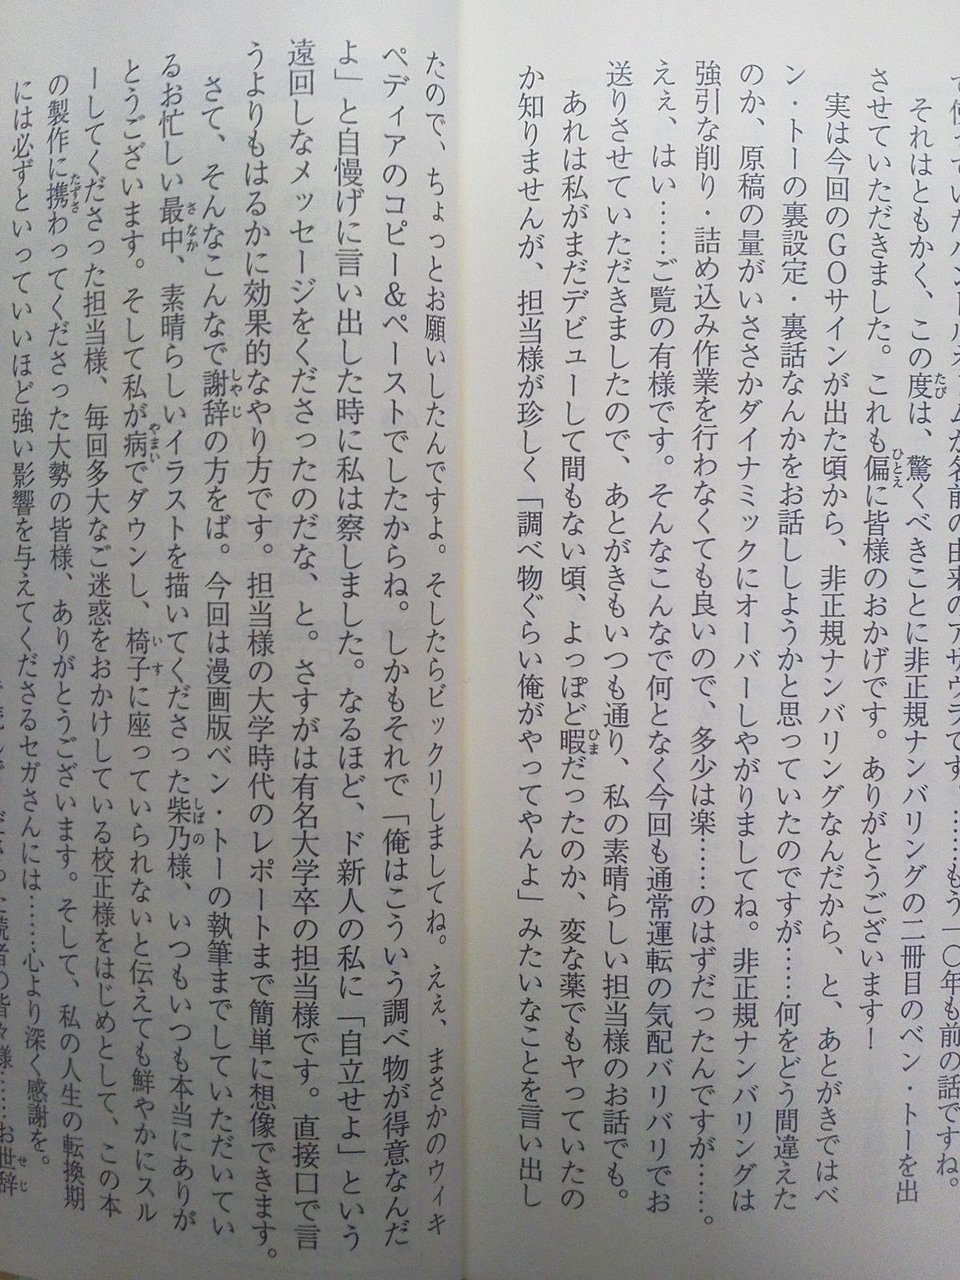 で使っていたハンドルネームが名前の由来のアサウラです……もう一〇年も前の話ですね。
それはともかく、この度は、驚くべきことに非正規ナンバリングの二冊目のベン・トーを出
させていただきました。これも偏に皆様のおかげです。ありがとうございます！
実は今回のＧＯサインが出た頃から、非正規ナンバリングなんだから、と、あとがきではベ
ン・トーの裏設定・裏話なんかをお話ししようかと思っていたのですが……何をどう間違えた
のか、原稿の量がいささかダイナミックにオーバーしやがりましてね。非正規ナンバリングは
強引な削り・詰め込み作業を行わなくても良いので、多少は楽……のはずだったんですが……。
えぇ、はい……ご覧の有様です。そんなこんなで何となく今回も通常運転の気配バリバリでお
送りさせていただきましたので、あとがきもいつも通り、私の素晴らしい担当様のお話でも。
あれは私がまだデビューして間もない頃、よっぽど暇だったのか、変な薬でもヤっていたの
か知りませんが、担当様が珍しく「調べ物ぐらい俺がやってやんよ」みたいなことを言い出し
たので、ちょっとお願いしたんですよ。そしたらビックリしましてね。えぇ、まさかのウィキ
ペディアのコピー＆ペーストでしたからね。しかもそれで「俺はこういう調べ物が得意なんだ
よ」と自慢げに言い出した時に私は察しました。なるほど、ド新人の私に「自立せよ」という
遠回しなメッセージをくださったのだな、と。さすがは有名大学卒の担当様です。直接口で言
うよりもはるかに効果的なやり方です。担当様の大学時代のレポートまで簡単に想像できます。
さて、そんなこんなで謝辞の方をば。今回は漫画版ベン・トーの執筆までしていただいてい
るお忙しい最中、素晴らしいイラストを描いてくださった柴乃様、いつもいつも本当にありが
とうございます。そして私が病でダウンし、椅子に座っていられないと伝えても鮮やかにスル
ーしてくださった担当様、毎回多大なご迷惑をおかけしている校正様をはじめとして、この本
の製作に携わってくださった大勢の皆様、ありがとうございます。そして、私の人生の転換期
には必ずといっていいほど強い影響を与えてくださるセガさんには……心より深く感謝を。
読者の皆々様……お世辞